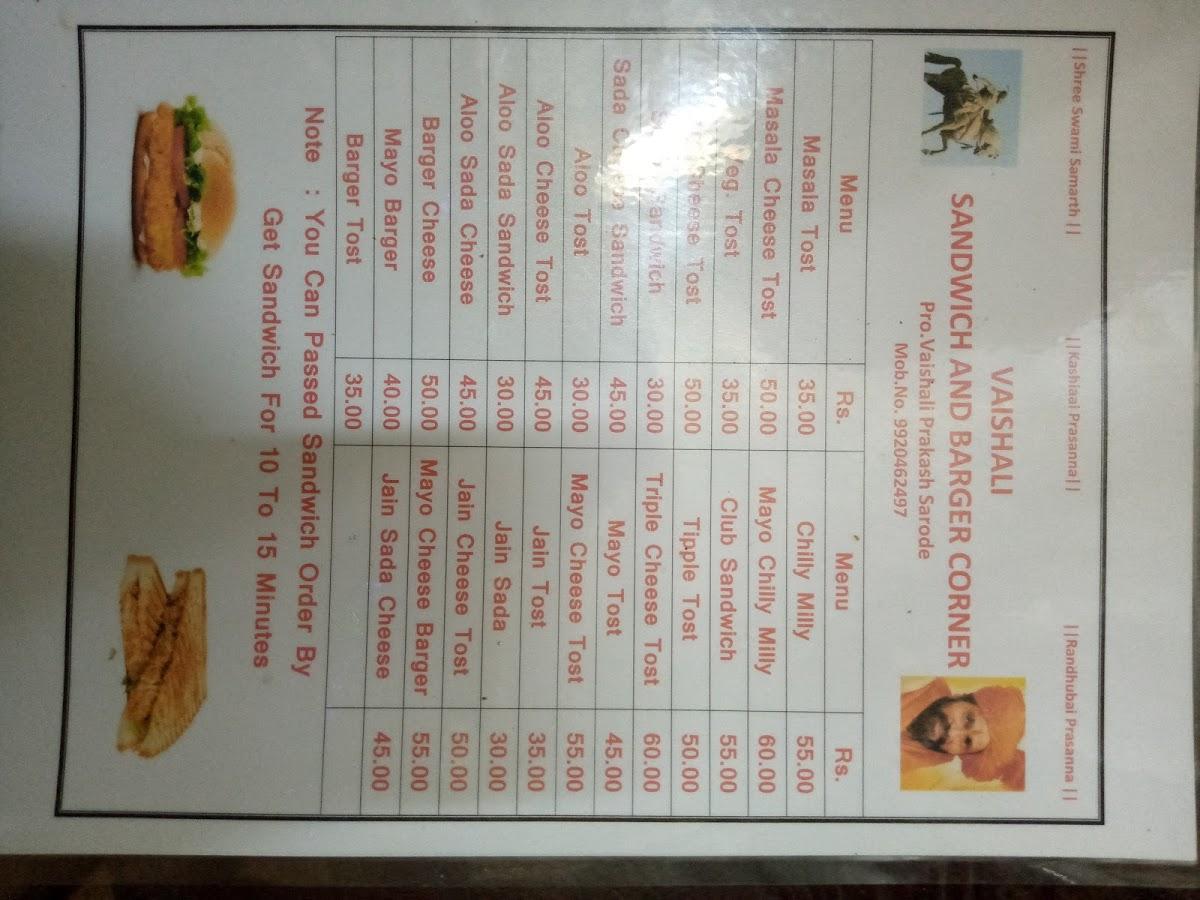 ||Shree Swami Samarth || ||Kashiaai Prasanna|| ||Randhubai Prasanna ||
VAISHALI
SANDWICH AND BARGER CORNER
Pro.Vaishali Prakash Sarode
Mob.No. 9920462497
Menu Rs. Menu Rs.
Masala Tost 35.00 Chilly Milly 55.00
Masala Cheese Tost 50.00 Mayo Chilly Milly 60.00
Tost 35.00 Club Sandwich 55.00
Cheese Tost 50.00 Tipple Tost 50.00
Sandwich 30.00 Triple Cheese Tost 60.00
Sada Sandwich 45.00 Mayo Tost 45.00
Aloo Tost 30.00 Mayo Cheese Tost 55.00
Aloo Cheese Tost 45.00 Jain Tost 35.00
Aloo Sada Sandwich 30.00 Jain Sada 30.00
Aloo Sada Cheese 45.00 Jain Cheese Tost 50.00
Barger Cheese 50.00 Mayo Cheese Barger 55.00
Mayo Barger 40.00 Jain Sada Cheese 45.00
Barger Tost 35.00
Note : You Can Passed Sandwich Order By
Get Sandwich For 10 To 15 Minutes